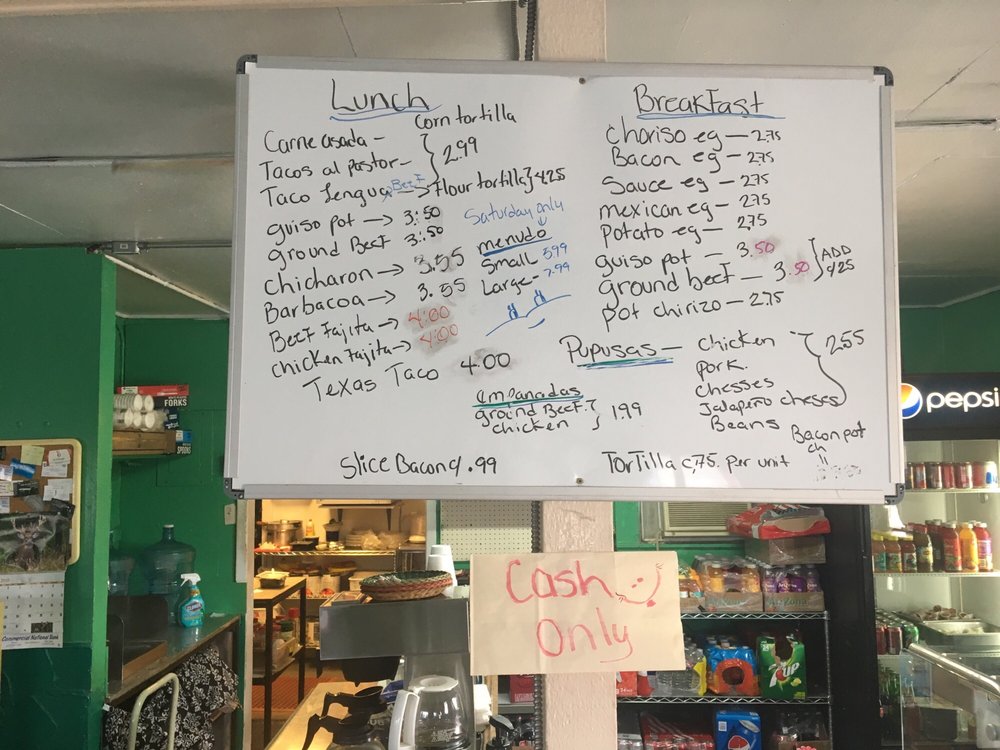 Lunch
Corn tortilla
Carne asada -
Tacos al pastor -
Taco lengua Beef → flour tortilla } 4.25
2.99
guiso pot → 3.50
ground Beef 3.50
chicharon → 3.55
Barbacoa → 3.55
Beef Fajita → 4.00
chicken Fajita → 4.00
Texas Taco 4.00
Saturday only
menudo
Small 5.99
Large 7.99
Breakfast
choriso eg - 2.75
Bacon eg - 2.75
Sauce eg - 2.75
mexican eg - 2.75
Potato eg - 2.75
guiso pot - 3.50
ground beef - 3.50
ADD
4.25
pot chirizo - 2.75
Pupusas - chicken
pork.
chesses
Jalapeño cheses
Beans
2.55
empanadas
ground Beef.
chicken } 1.99
Bacon pot
ch
"
Slice Bacon .99
TorTilla c.75. per unit
Cash
Only
pepsi
FORKS
SPOONS
Commercial National Bank
7UP